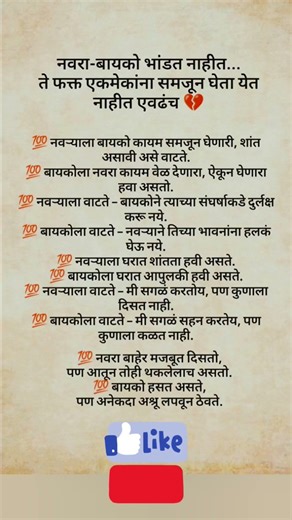 नवरा-बायको भांडत नाहीत...
ते फक्त एकमेकांना समजून घेता येत
नाहीत एवढंच 💔
💯 नवऱ्याला बायको कायम समजून घेणारी, शांत
असावी असे वाटते.
💯 बायकोला नवरा कायम वेळ देणारा, ऐकून घेणारा
हवा असतो.
💯 नवऱ्याला वाटते – बायकोने त्याच्या संघर्षाकडे दुर्लक्ष
करू नये.
💯 बायकोला वाटते – नवऱ्याने तिच्या भावनांना हलकं
घेऊ नये.
💯 नवऱ्याला घरात शांतता हवी असते.
💯 बायकोला घरात आपुलकी हवी असते.
💯 नवऱ्याला वाटते – मी सगळं करतोय, पण कुणाला
दिसत नाही.
💯 बायकोला वाटते – मी सगळं सहन करतेय, पण
कुणाला कळत नाही.
💯 नवरा बाहेर मजबूत दिसतो,
पण आतून तोही थकलेलाच असतो.
💯 बायको हसत असते,
पण अनेकदा अश्रू लपवून ठेवते.
Like